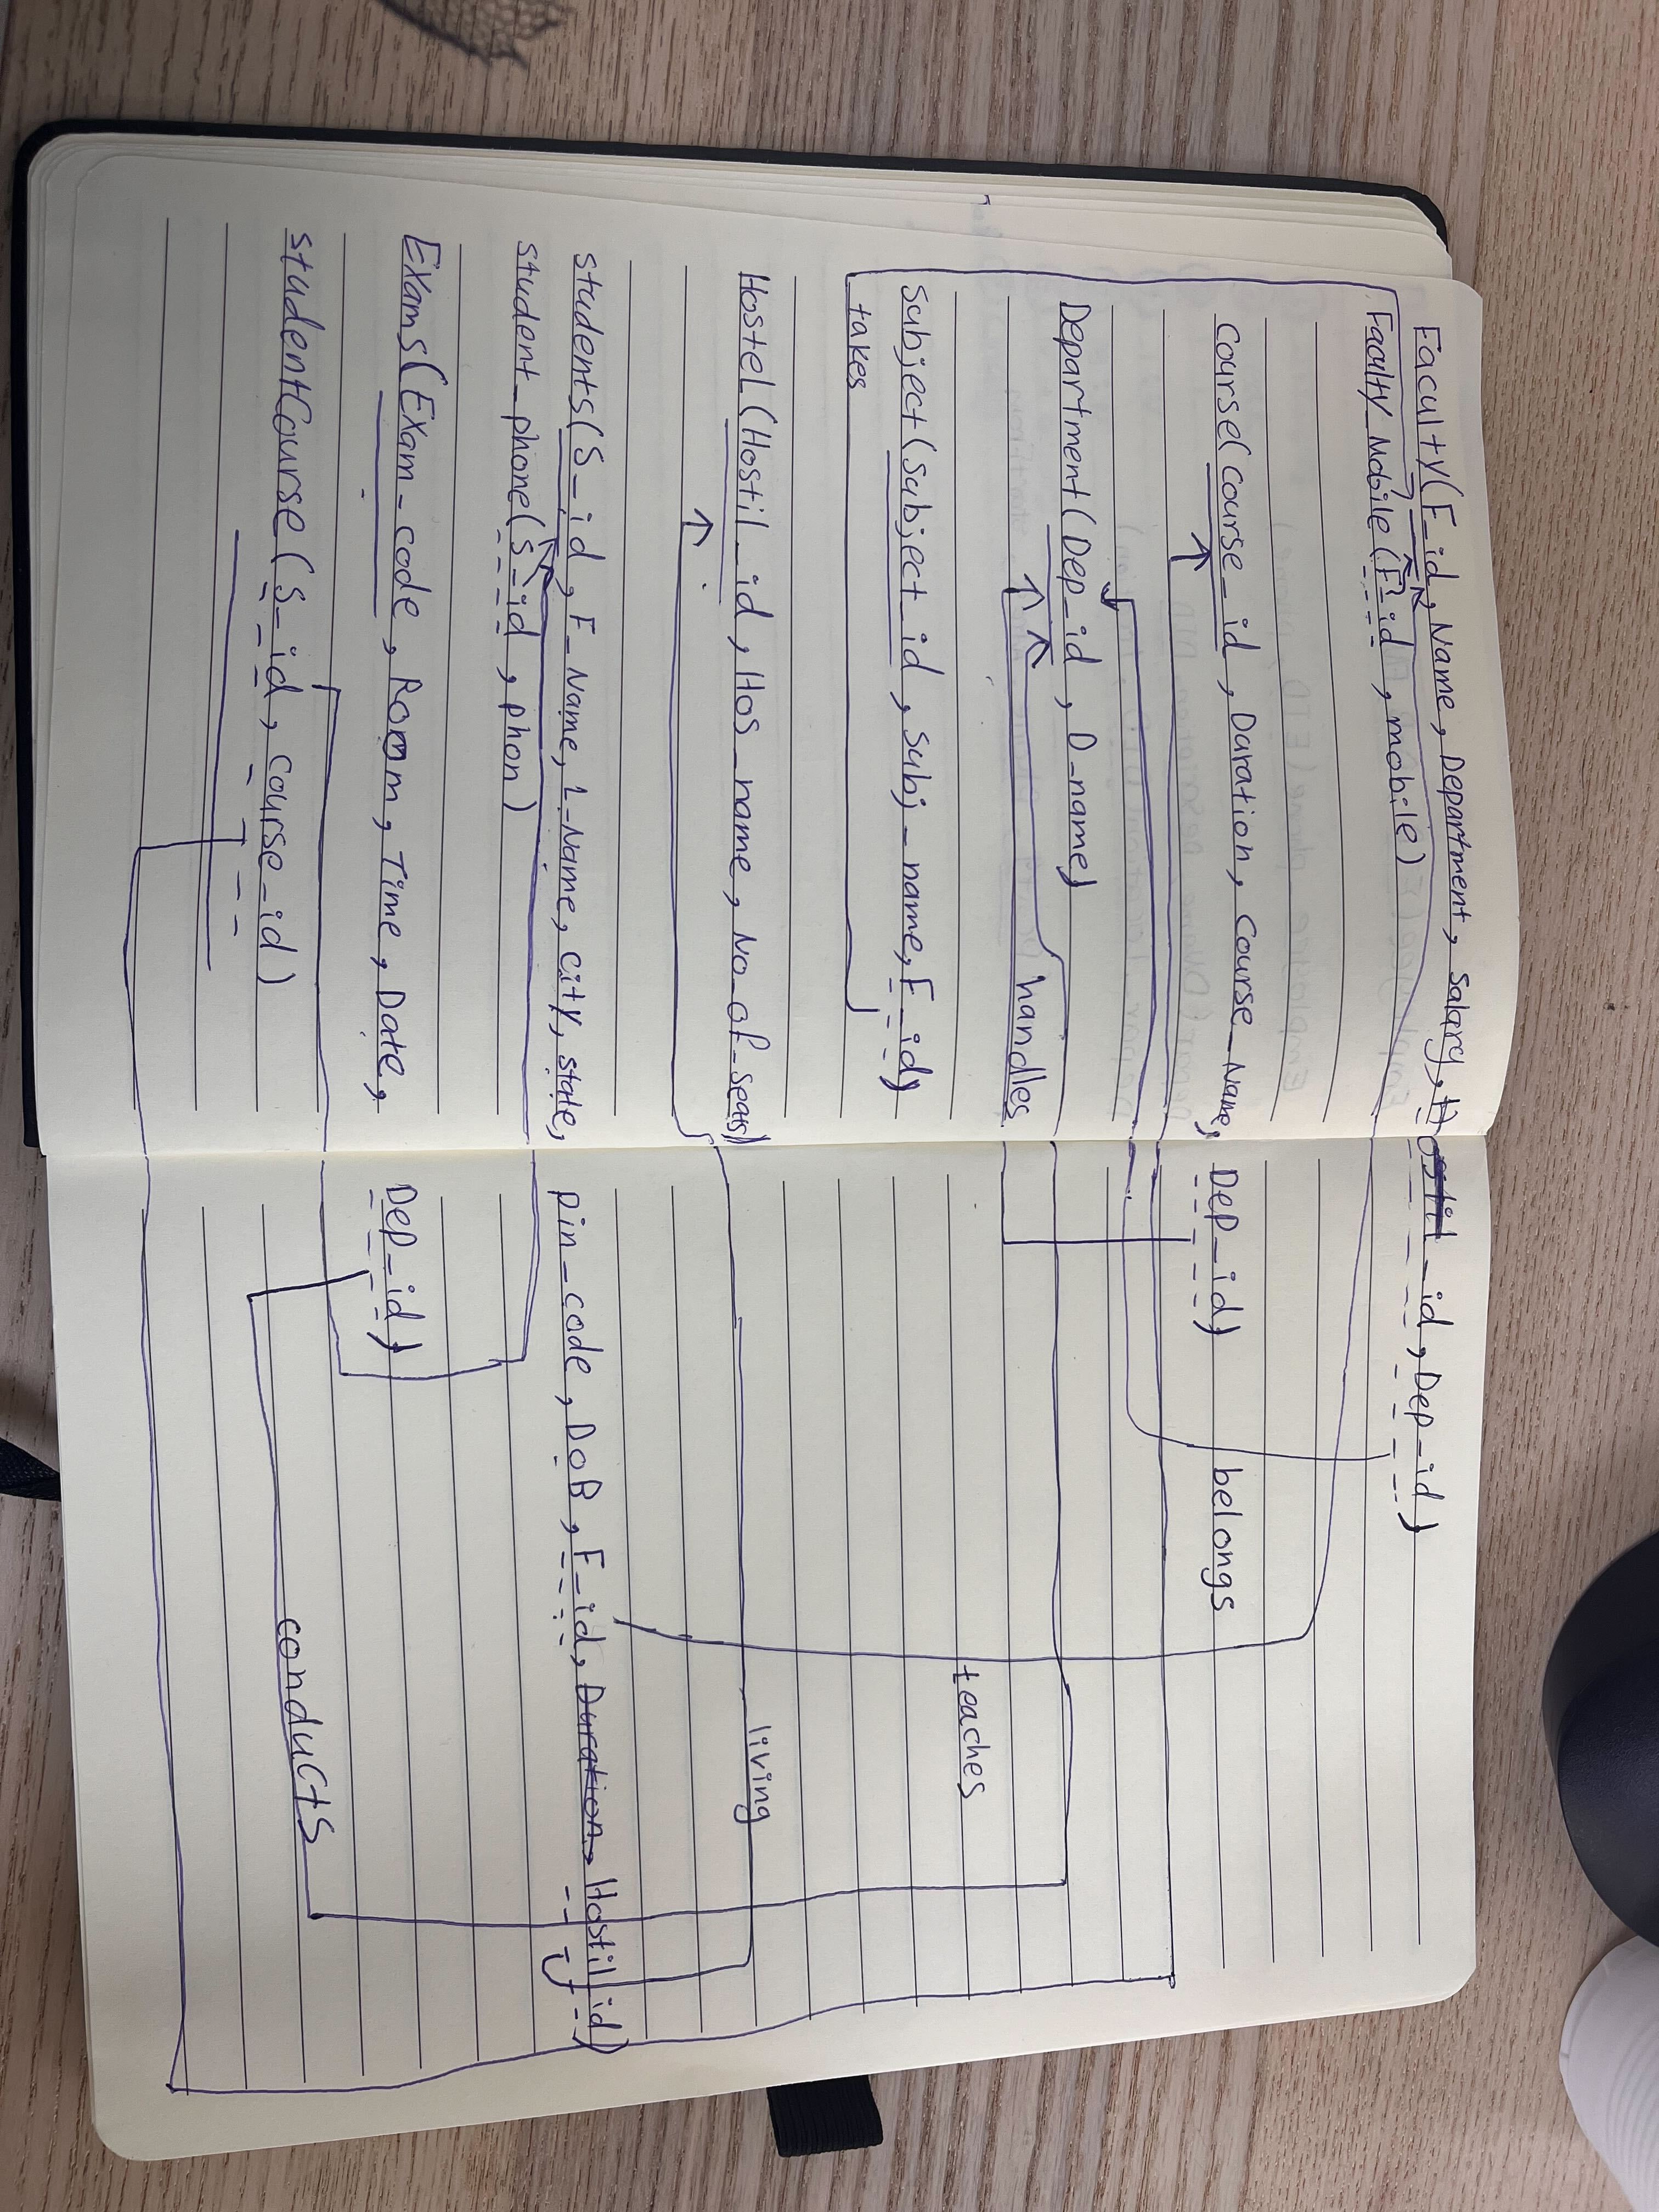 Faculty(F_id, Name, Department, salary, Hostil_id, Dep_id)
Faculty_Mobile(F_id, mobile)
Course(Course_id, Duration, Course_Name, Dep_id)
belongs
Department(Dep_id, D_name)
handles
Subject(Subject_id, Subj_name, F_id)
teaches
takes
Hostel(Hostil_id, Hos_name, No_of_seats)
living
students(S_id, F_Name, L_Name, city, state, pin_code, DoB, F_id, Duration, Hostil_id)
student_phone(S_id, phon)
Exams(Exam_code, Room, Time, Date, Dep_id)
studentCourse(S_id, Course_id)
conducts